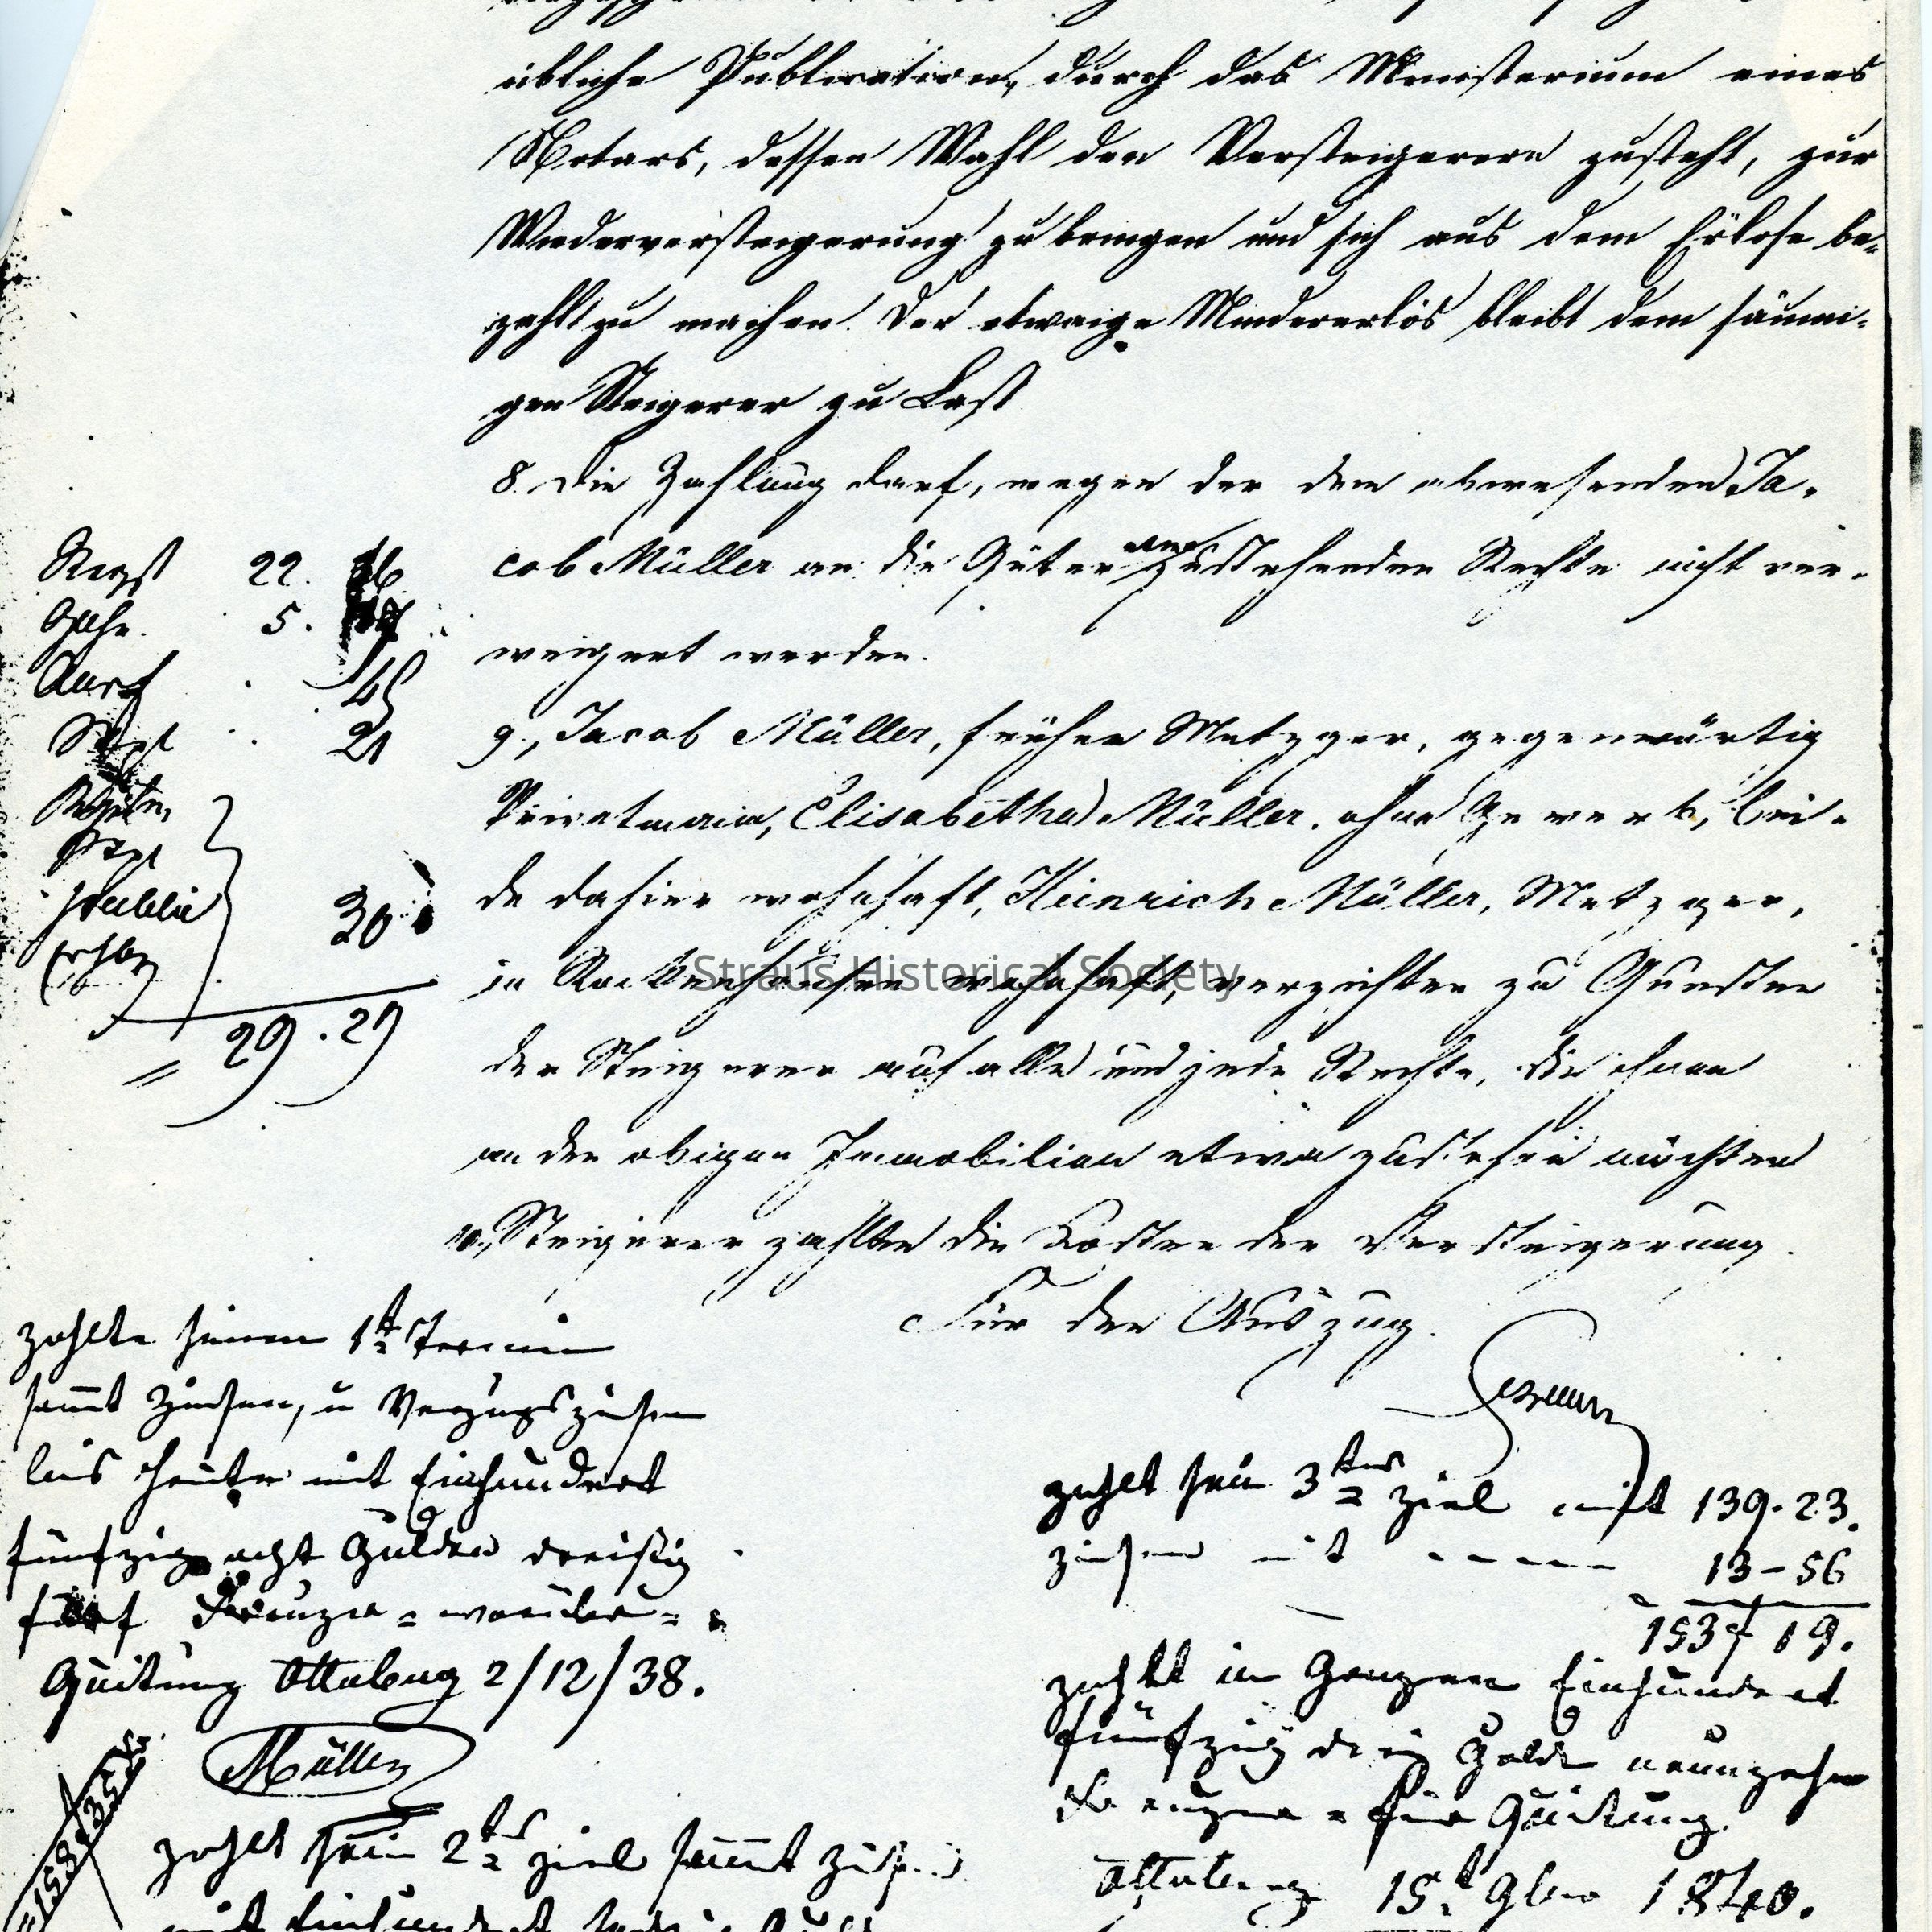 übliche Publication, durch das Ministerium eines
Notars, dessen Wahl den Versteigerern zusteht, zur
Wiederversteigerung zu bringen und sich aus dem Erlöse be-
zahlt zu machen. Der etwaige Mindererlös bleibt dem säumi-
gen Steigerer zu Last
8. Die Zahlung darf, wegen der dem abwesenden Ja-
cob Müller an die Güter etwa zustehenden Rechte nicht ver-
weigert werden.
9., Jacob Müller, früher Metzger, gegenwärtig
Privatmann, Elisabetha Müller, ohne Gewerb, bei-
de dahier wohnhaft, Heinrich Müller, Metzger,
in Rockenhausen wohnhaft, verzichten zu Gunsten
der Steigerer auf alle und jede Rechte, die ihnen
an den obigen Immobilien etwa zustehen möchten
10., Steigerer zahlen die Kosten der Versteigerung.
Für den Auszug.
Regst 22.
Gebr. 5.
45
21
30
29.27
Straus Historical Society
zahlte seinen 1t Termin
sammt Zinsen, u Verzugszinsen
bis heute mit Einhundert
fünfzig acht Gulden dreisig
fünf Kreuzer = worüber =
Quitung Otterberg 2/12/38.
Müller
zahlt sein 2tes Ziel sammt
zahlt sein 3tes Ziel mit 139.23.
Zinsen mit ----- 13-56
153 f 19.
zahlt im Ganzen Einhundert
fünfzig drey Gulden neunzehn
Kreuzer = für Quitung.
Otterberg 15t 9ber 1840.